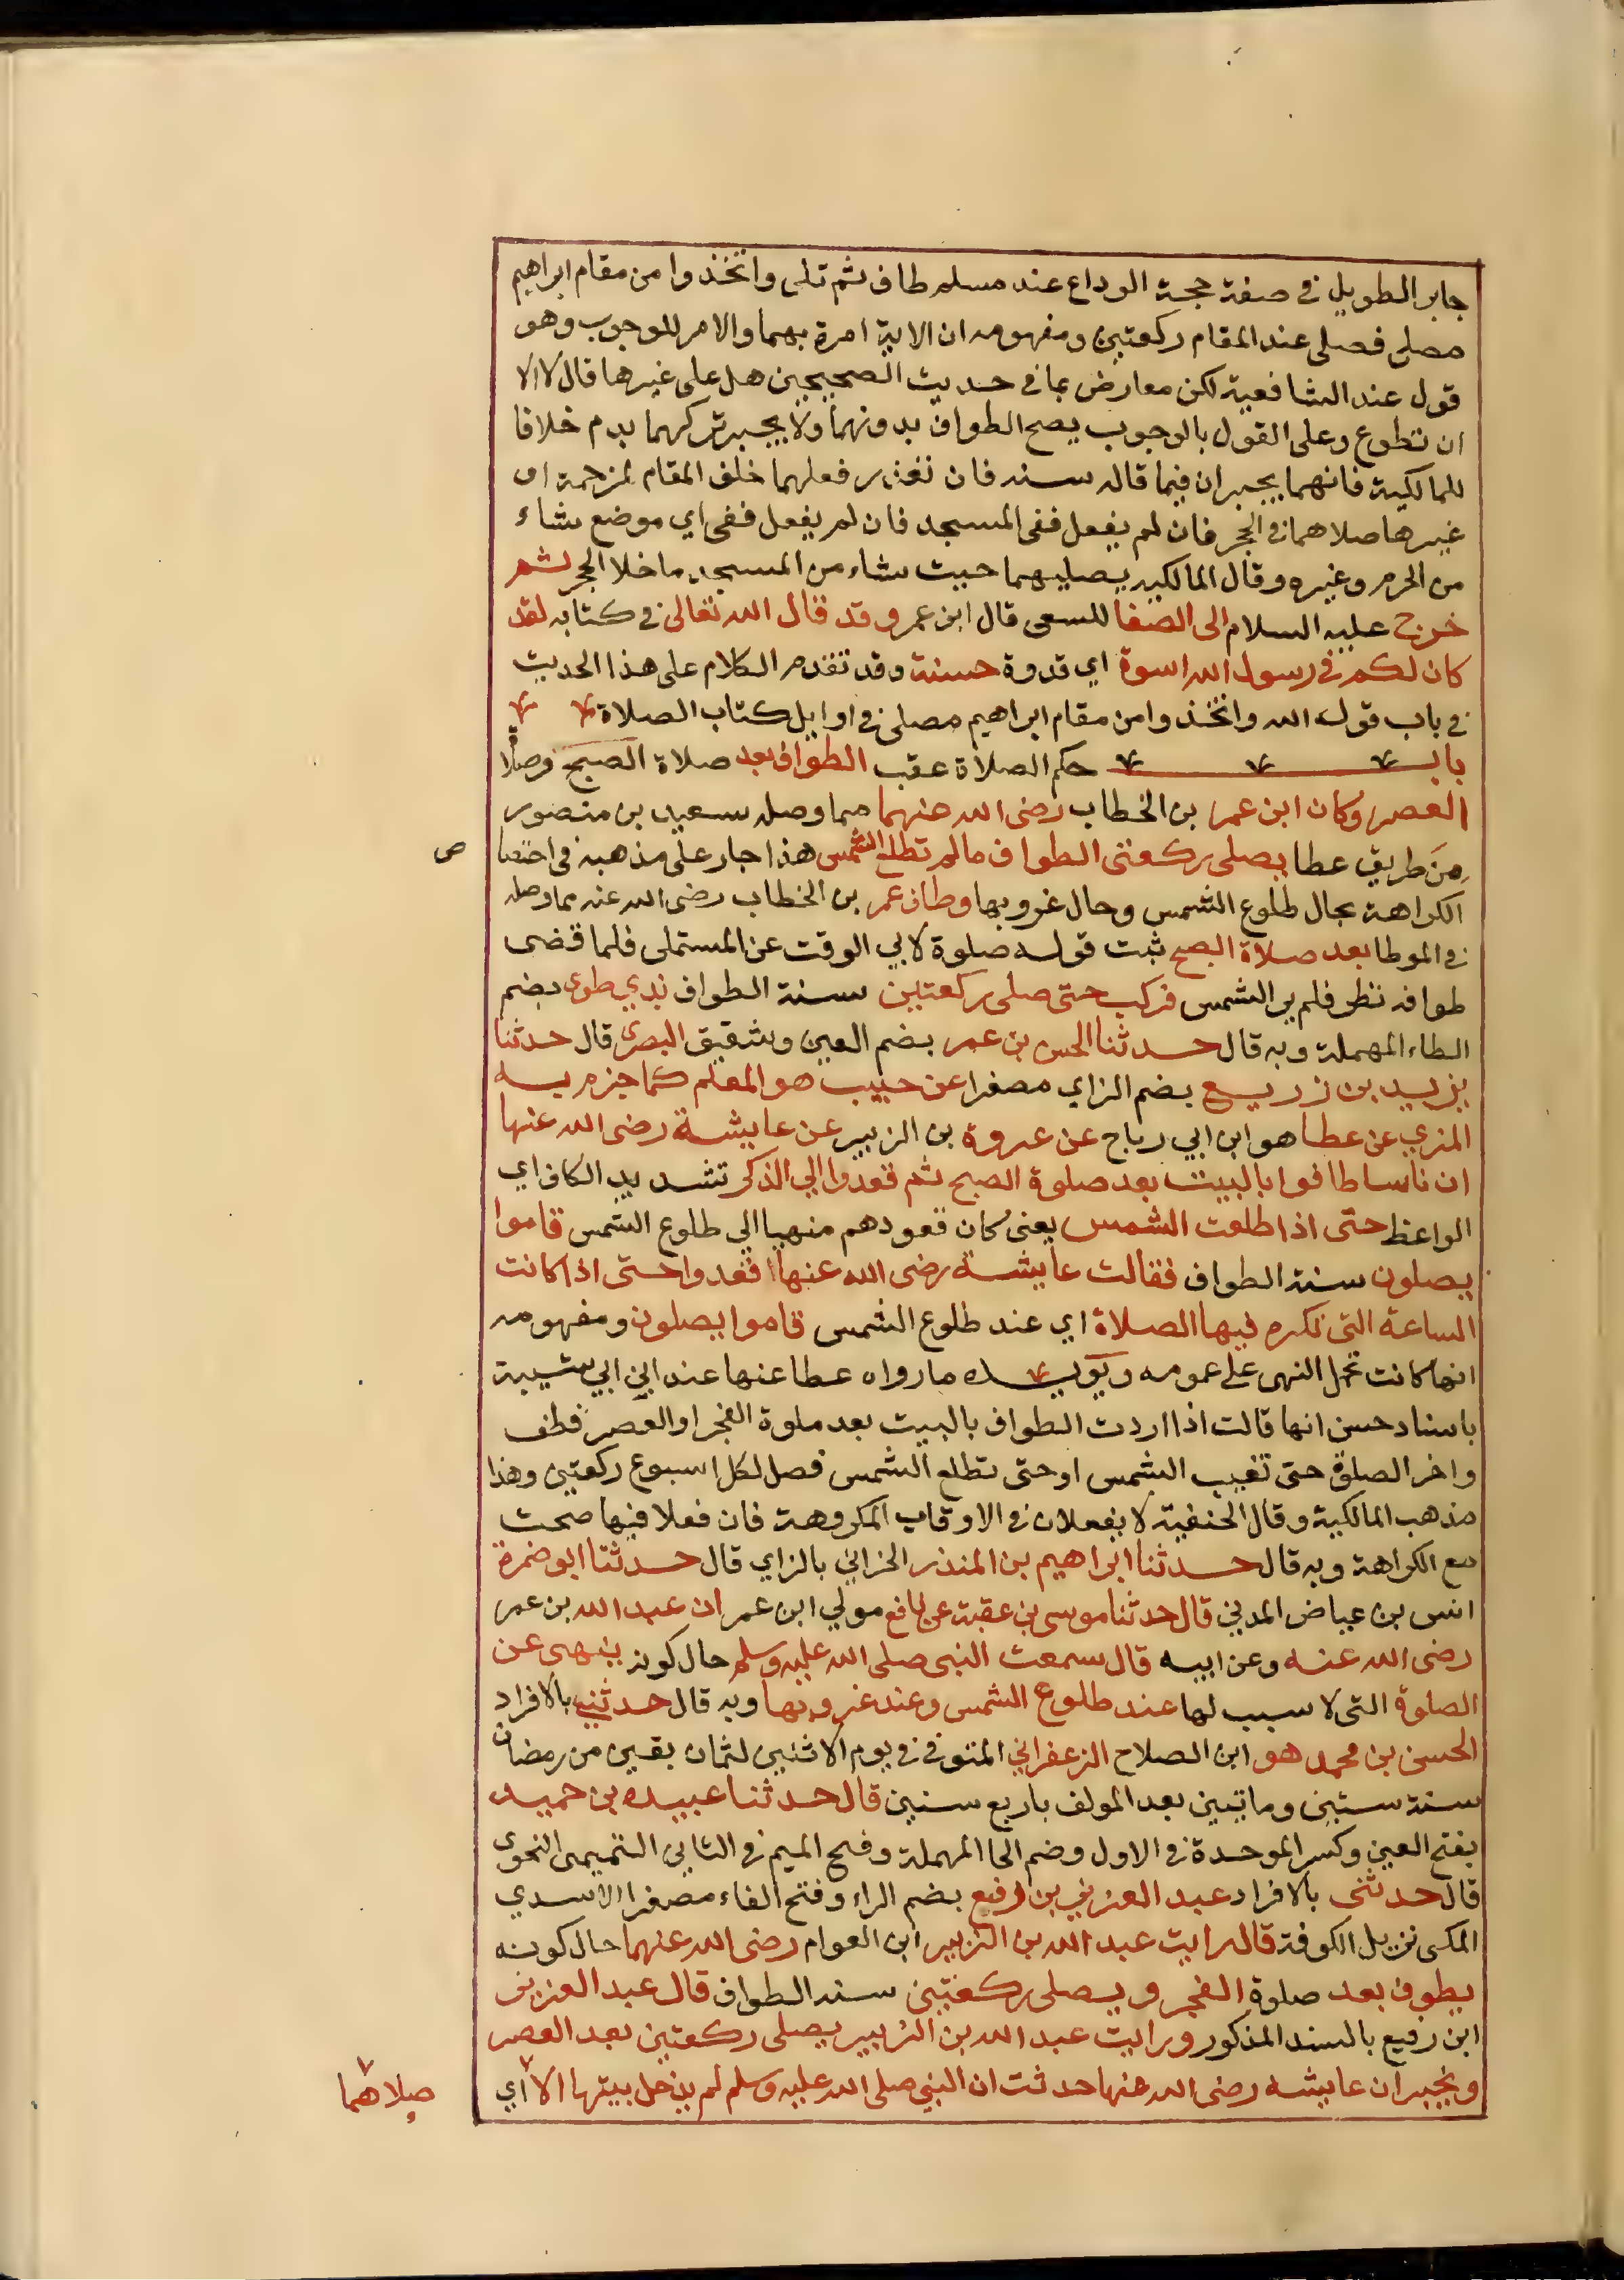 جابر الطويل في صفة حجة الوداع عند مسلم طاف ثم تلى واتخذوا من مقام ابراهيم
مصلى فصلى عند المقام ركعتين ومفهومه ان الاية امرة بهما والامر للوجوب وهو
قول عند الشافعية لكن معارض بما في حديث الصحيحين هل على غيرها قال لا الا
ان تطوع وعلى القول بالوجوب يصح الطواف بدونهما ولا يجبر تركهما بدم خلافا
للمالكية فانهما يجبران فيما قاله سند فان تعذر فعلهما خلف المقام لزحمة او
غيرها صلاهما في الحجر فان لم يفعل ففي المسجد فان لم يفعل ففي اي موضع شاء
من الحرم وغيره وقال المالكية يصليهما حيث شاء من المسجد ما خلا الحجر ثم
خرج عليه السلام الى الصفا للسعى قال ابن عمر وقد قال الله تعالى في كتابه لقد
كان لكم في رسول الله اسوة اي قدوة حسنة وقد تقدم الكلام على هذا الحديث
في باب قول الله واتخذوا من مقام ابراهيم مصلى في اوايل كتاب الصلاة
باب حكم الصلاة عقب الطواف بعد صلاة الصبح وصلاة
العصر وكان ابن عمر بن الخطاب رضى الله عنهما مما وصله سعيد بن منصور
من طريق عطا يصلى ركعتى الطواف ما لم تطلع الشمس هذا جار على مذهبه في اختصا ص
الكراهة بحال طلوع الشمس وحال غروبها وطاف عمر بن الخطاب رضى الله عنه مما وصله
في الموطا بعد صلاة الصبح ثبت قوله صلوة لابي الوقت عن المستملى فلما قضى
طوافه نظر فلم ير الشمس فركب حتى صلى ركعتين سنة الطواف بذي طوى بضم
الطاء المهملة وبه قال حدثنا الحسن بن عمر بضم العين وشقيق البصرى قال حدثنا
يزيد بن زريع بضم الزاي مصغرا عن حبيب هو المعلم كما جزم به
المزي عن عطا هو ابن ابي رباح عن عروة بن الزبير عن عايشة رضى الله عنها
ان ناسا طافوا بالبيت بعد صلوة الصبح ثم قعدوا الي الذكر تشديد الكاف اي
الواعظ حتى اذا طلعت الشمس يعنى كان قعودهم منهيا الي طلوع الشمس قاموا
يصلون سنة الطواف فقالت عايشة رضى الله عنها قعدوا حتى اذا كانت
الساعة التى تكره فيها الصلاة اي عند طلوع الشمس قاموا يصلون ومفهومه
انها كانت تحمل النهى على عمومه ويويده ما رواه عطا عنها عند ابن ابي شيبة
باسناد حسن انها قالت اذا اردت الطواف بالبيت بعد صلوة الفجر او العصر فطف
واخر الصلوة حتى تغيب الشمس او حتى تطلع الشمس فصل لكل اسبوع ركعتين وهذا
مذهب المالكية وقال الحنفية لا يفعلان في الاوقات المكروهة فان فعلا فيها صحت
مع الكراهة وبه قال حدثنا ابراهيم بن المنذر الحزاني بالزاي قال حدثنا ابو ضمرة
انس بن عياض المدني قال حدثنا موسى بن عقبة عن نافع مولي ابن عمر ان عبد الله بن عمر
رضى الله عنه وعن ابيه قال سمعت النبى صلى الله عليه وسلم حال كونه ينهى عن
الصلوة التى لا سبب لها عند طلوع الشمس وعند غروبها وبه قال حدثني بالافراد
الحسن بن محمد هو ابن الصلاح الزعفراني المتوفى في يوم الاثنين لثمان بقين من رمضان
سنة ستين وماتين بعد المولف باربع سنين قال حدثنا عبيده بن حميد
بفتح العين وكسر الموحدة في الاول وضم الحا المهملة وفتح الميم في الثاني التميمى النحوى
قال حدثنى بالافراد عبد العزيز بن رفيع بضم الراء وفتح الفاء مصغرا الاسدي
المكى نزيل الكوفة قال رايت عبد الله بن الزبير ابن العوام رضى الله عنهما حال كونه
يطوف بعد صلوة الفجر ويصلى ركعتين سنة الطواف قال عبد العزيز
ابن رفيع بالسند المذكور ورايت عبد الله بن الزبير يصلى ركعتين بعد العصر
ويخبر ان عايشه رضى الله عنها حدثت ان النبي صلى الله عليه وسلم لم يدخل بيتها الا اي
صلاهما